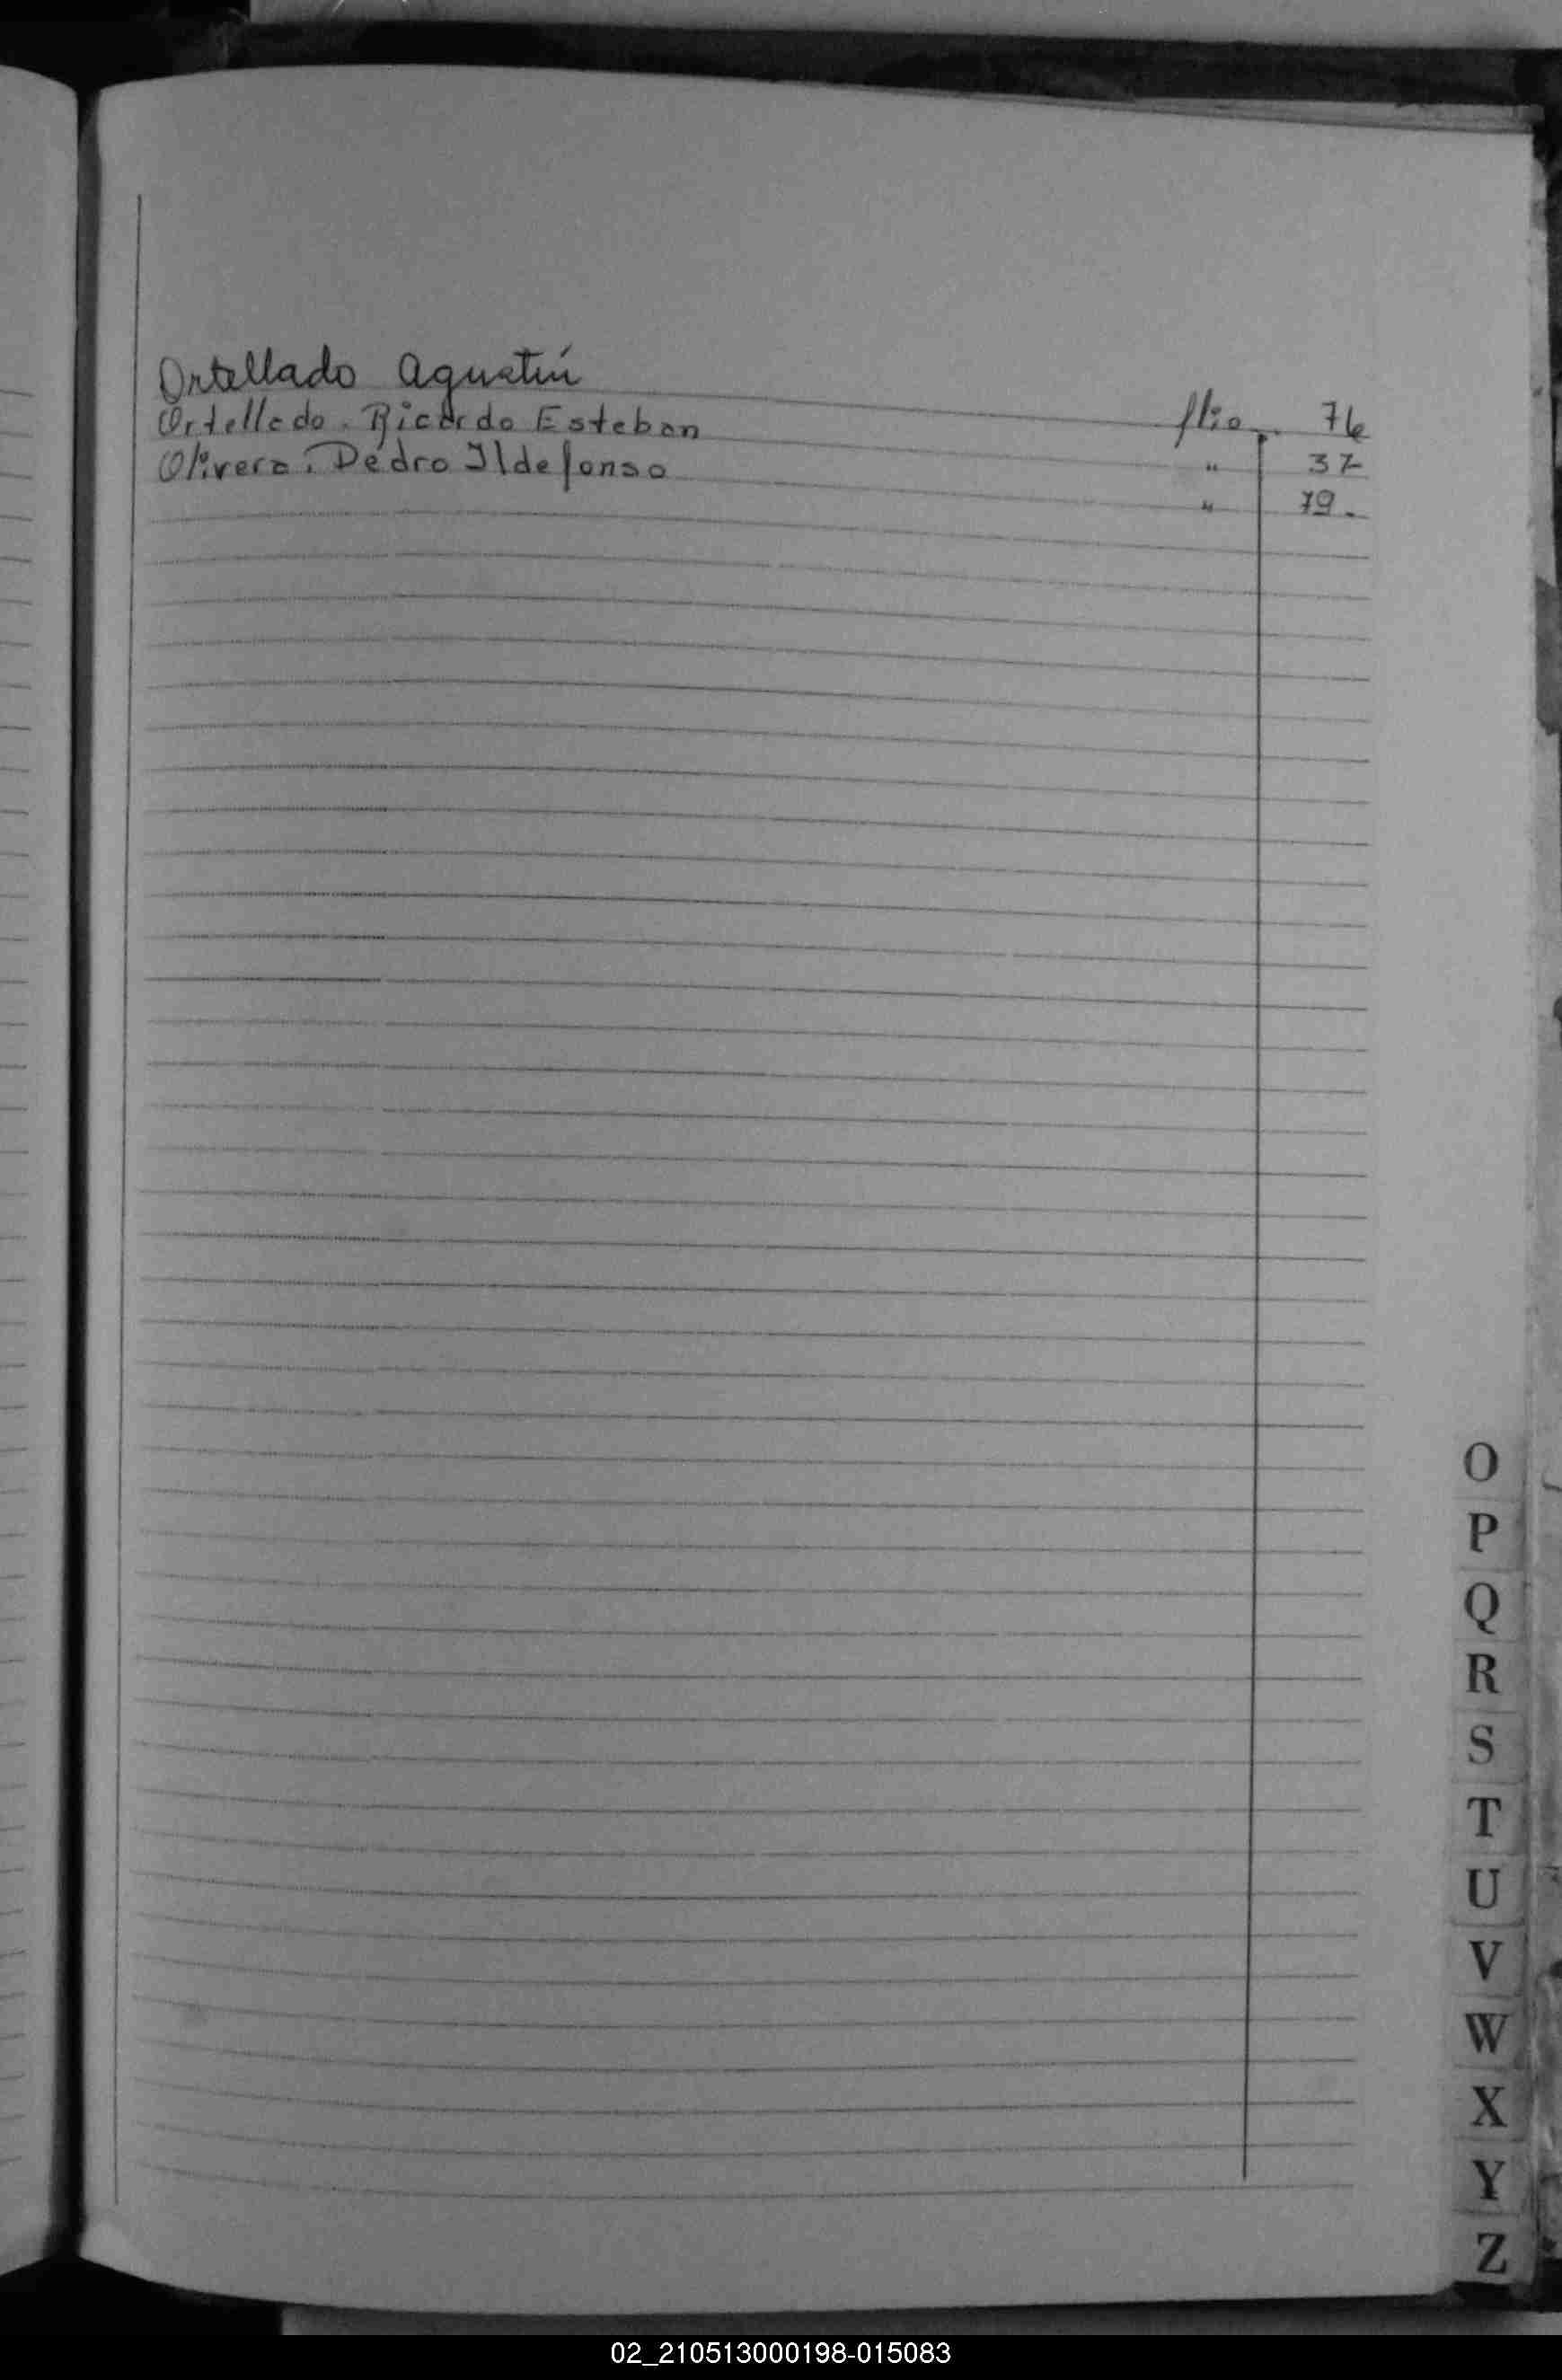 Ortellado Agustín flio 76
Ortellado. Ricardo Esteban " 37
Olivera. Pedro Ildefonso " 79.
O
P
Q
R
S
T
U
V
W
X
Y
Z
02_210513000198-015083